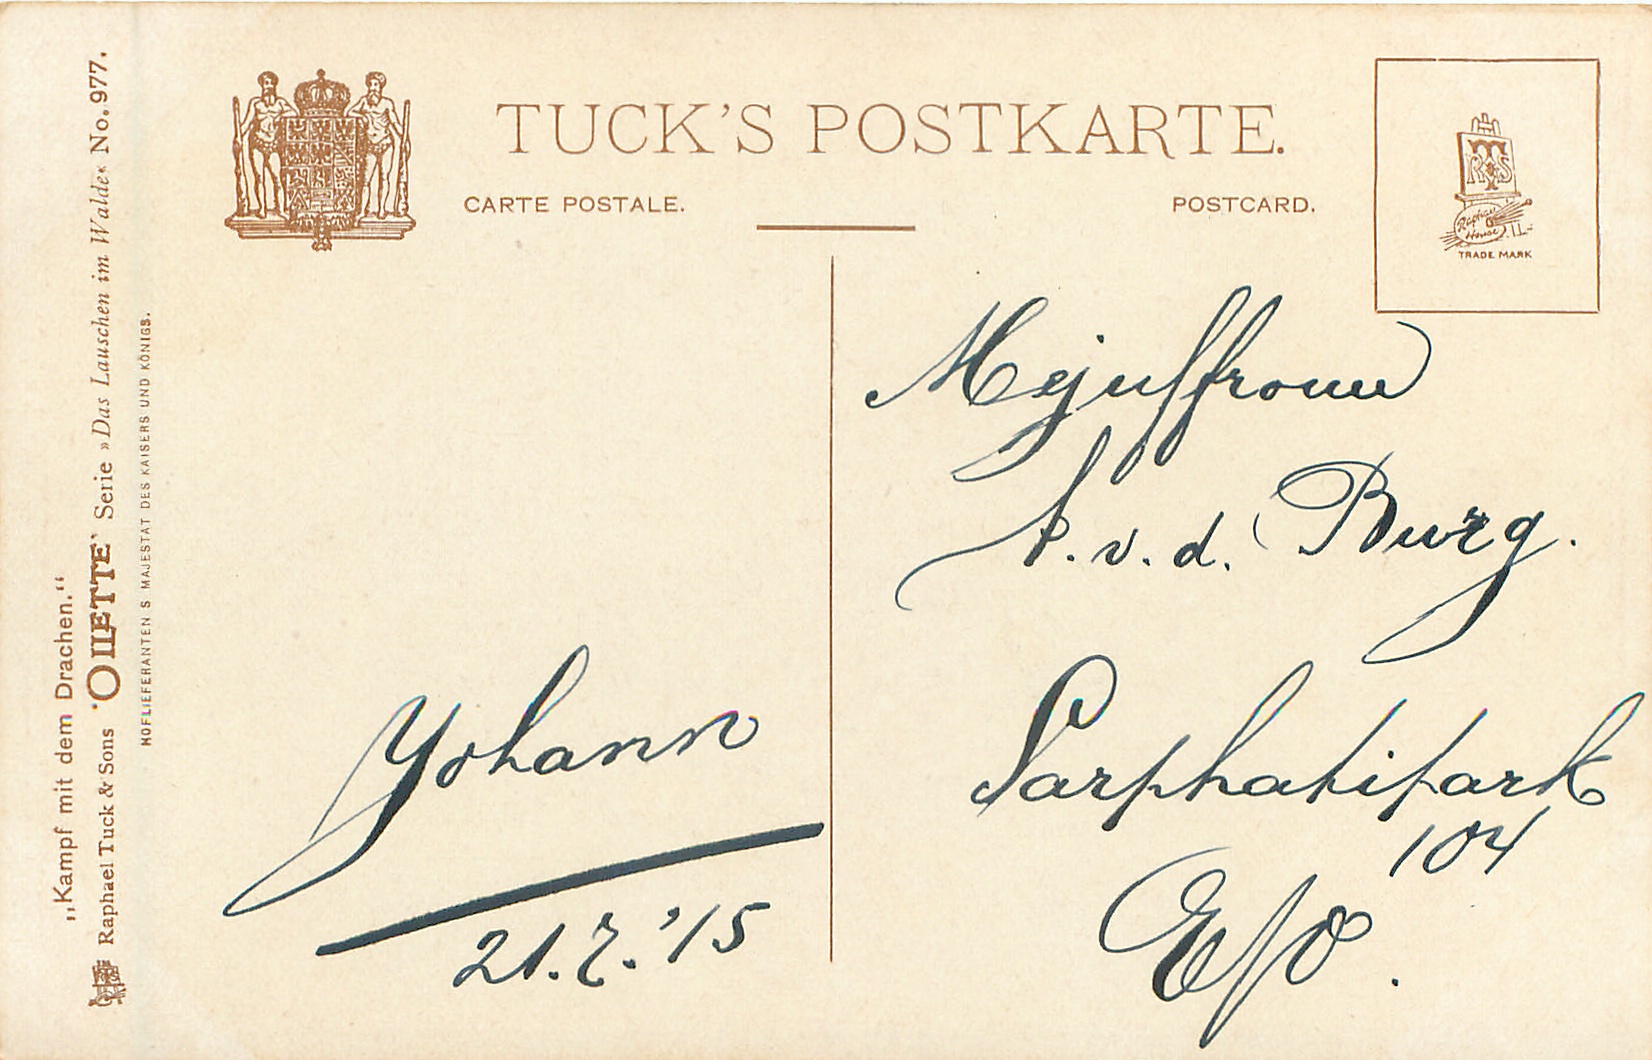 TUCK'S POSTKARTE.
CARTE POSTALE.
POSTCARD.
RTS
Raphael
House
TRADE MARK
„Kampf mit dem Drachen.“
Raphael Tuck & Sons "OILETTE" Serie »Das Lauschen im Walde« No. 977.
HOFLIEFERANTEN S MAJESTÄT DES KAISERS UND KÖNIGS.
Mejuffrouw
A. v. d. Burg.
Sarphatipark
104
Yohann
21.7.'15